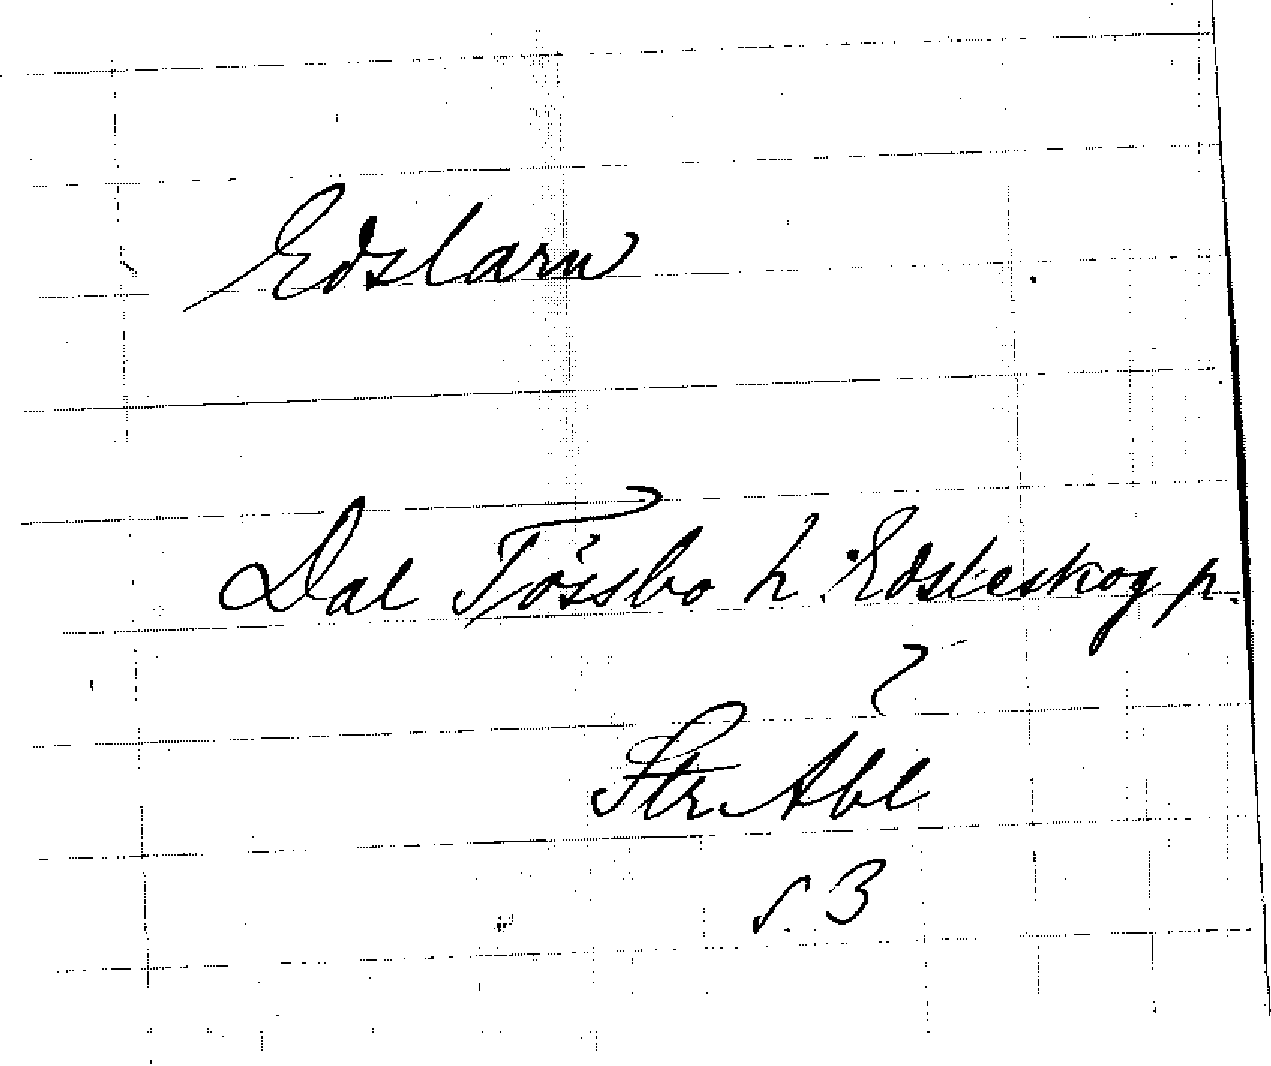 Edslarn
Dal Tössbo h. Edsleskog p.
Str Abl
s. 3